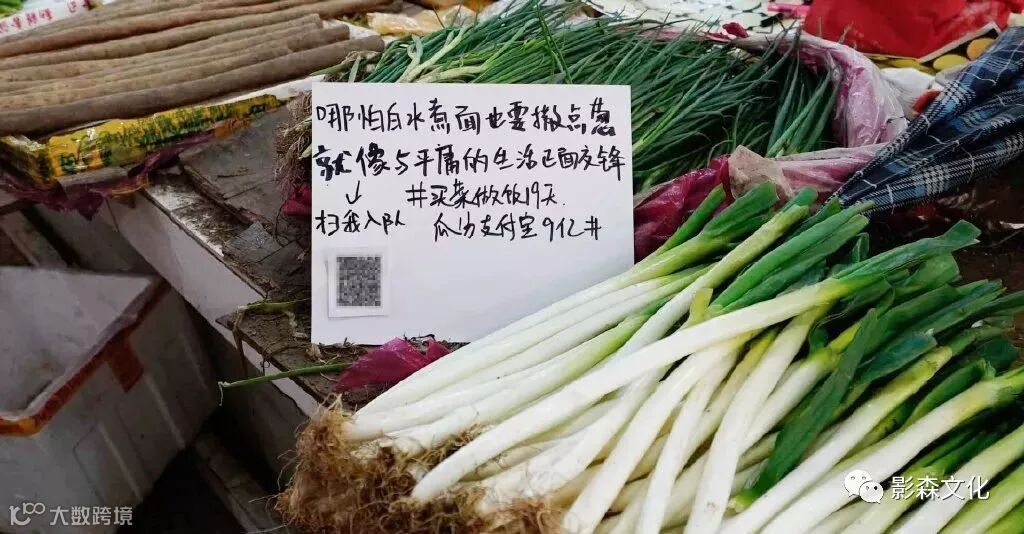 哪怕白水煮面也要撒点葱
就像与平庸的生活正面交锋
↓ #买菜做饭19天
扫我入队 瓜分支付宝9亿#
影森文化
大数跨境